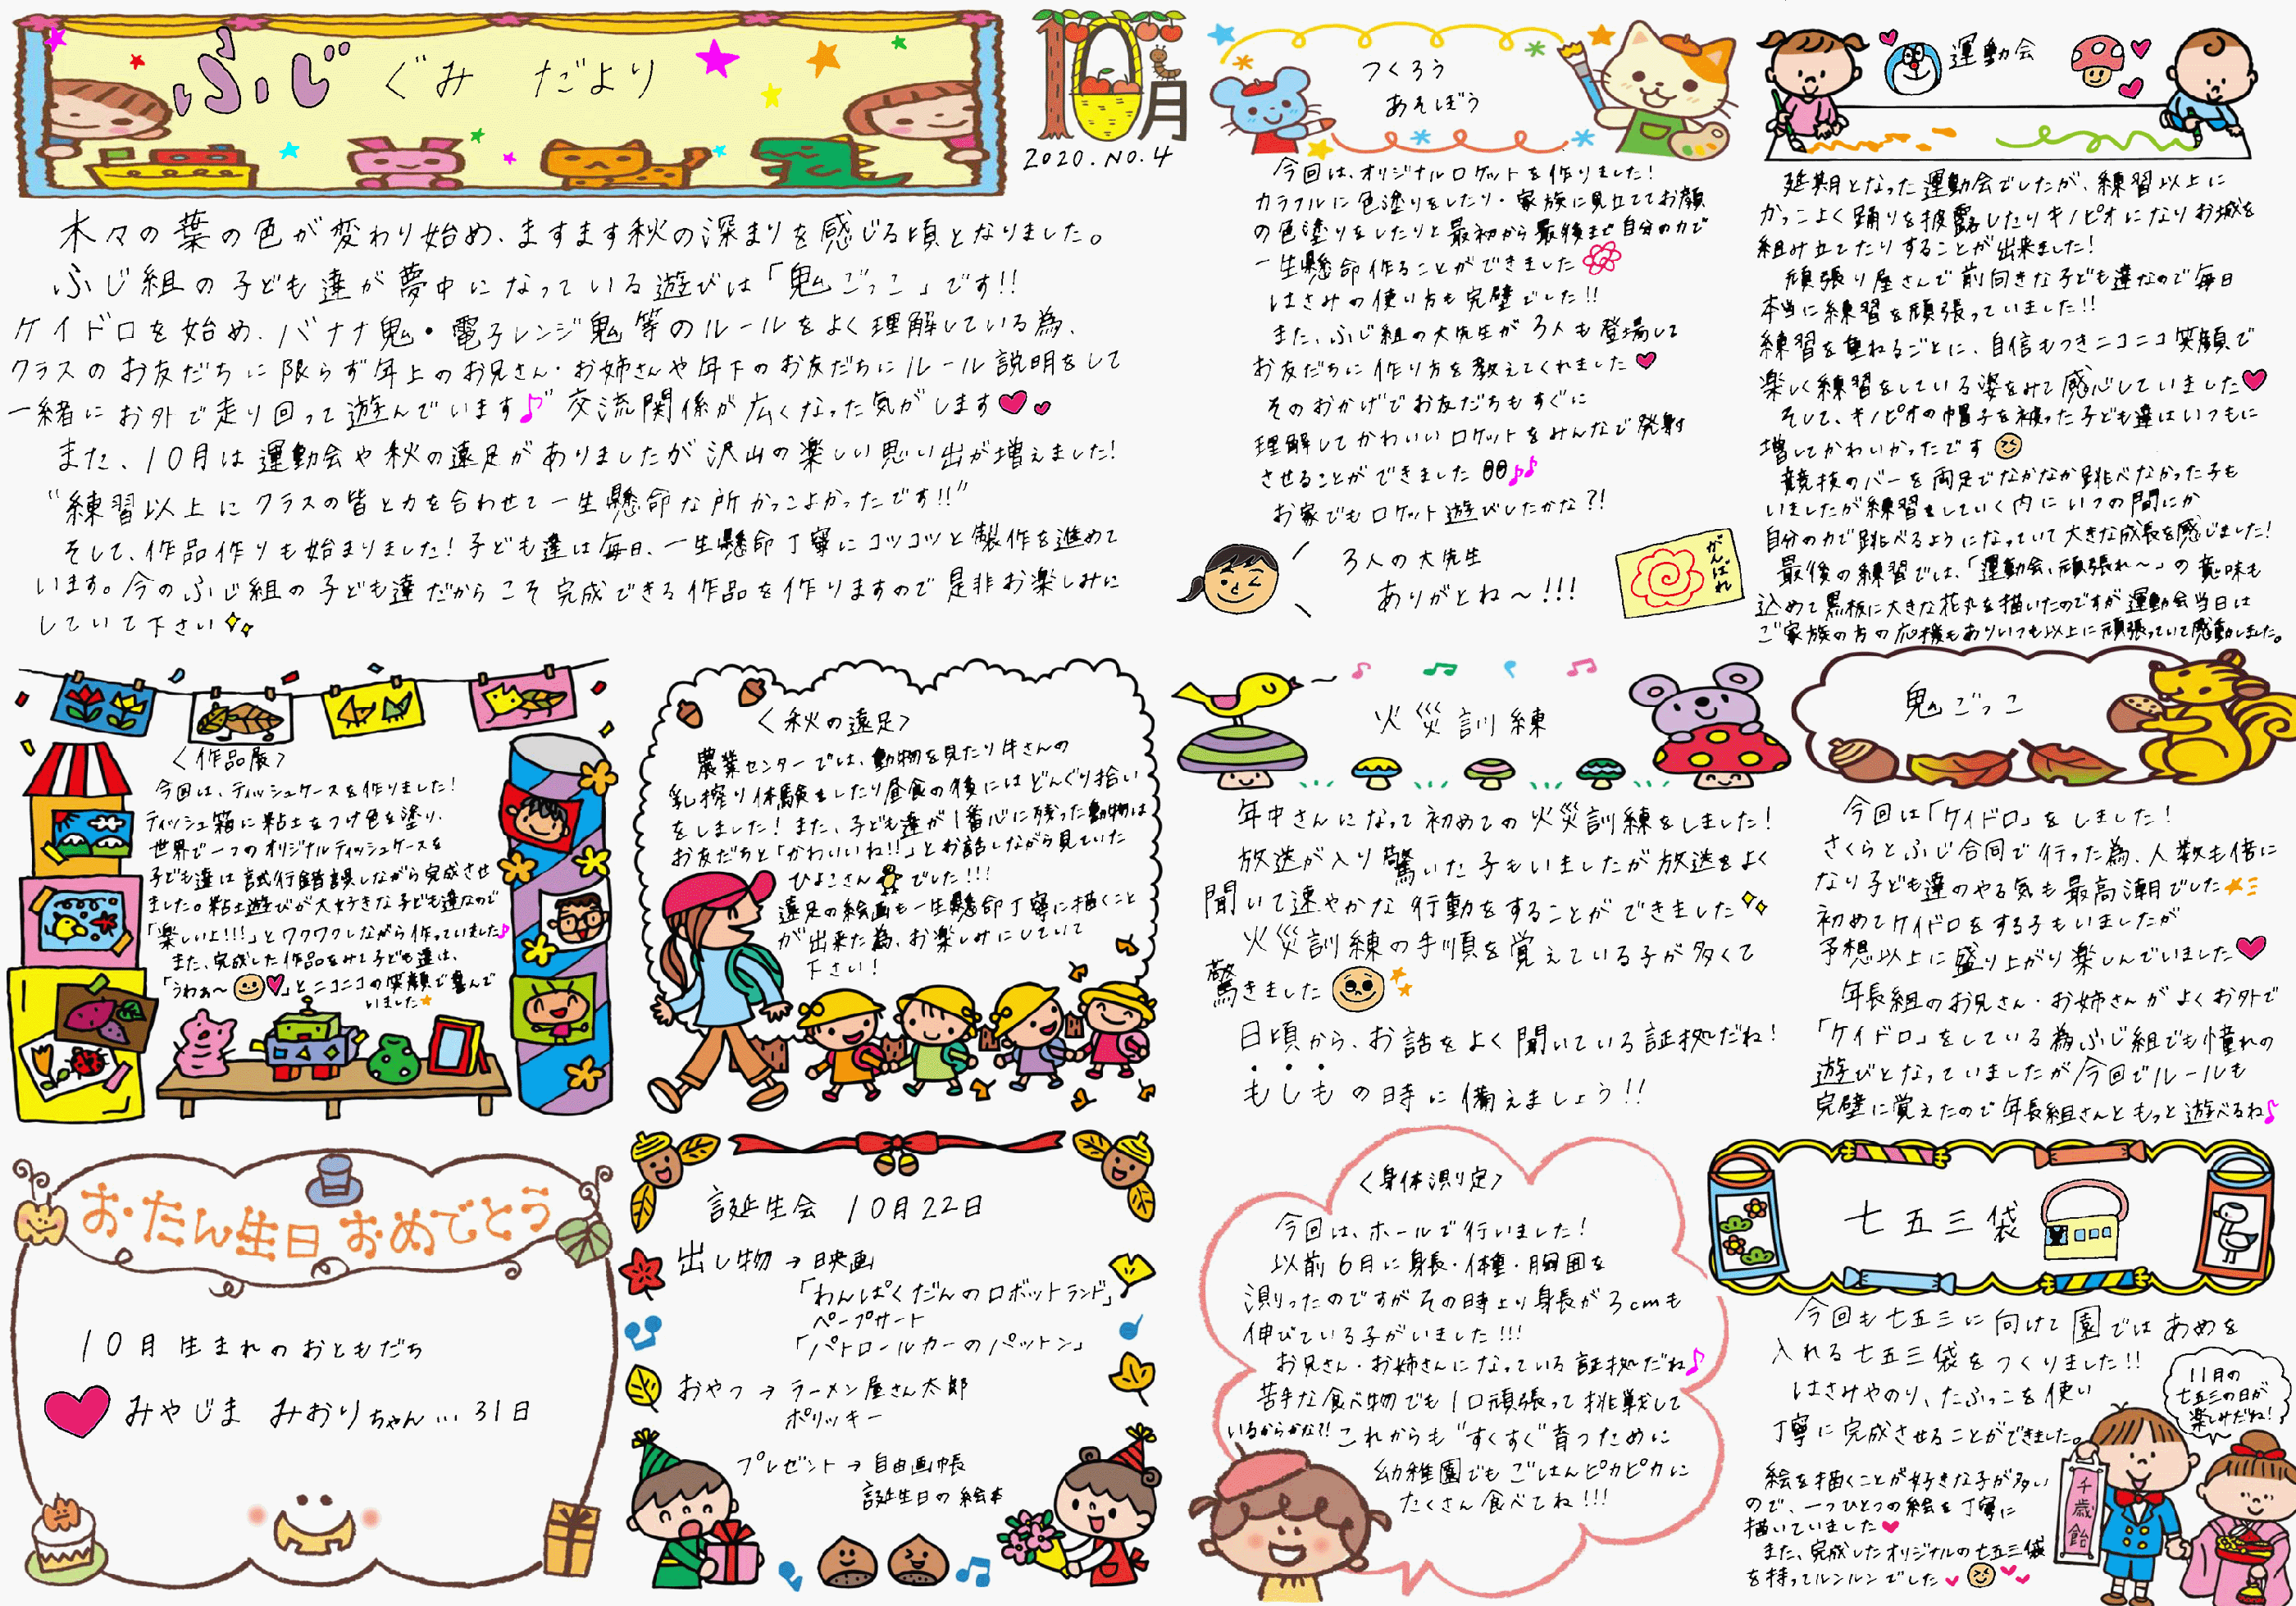 ふじ ぐみ だより
10月
2020.NO.4
木々の葉の色が変わり始め、ますます秋の深まりを感じる頃となりました。
ふじ組の子ども達が夢中になっている遊びは「鬼ごっこ」です!!
ケイドロを始め、バナナ鬼・電子レンジ鬼等のルールをよく理解している為、
クラスのお友だちに限らず年上のお兄さん・お姉さんや年下のお友だちにルール説明をして
一緒にお外で走り回って遊んでいます♪ 交流関係が広くなった気がします♥♥
また、10月は運動会や秋の遠足がありましたが沢山の楽しい思い出が増えました!
“練習以上にクラスの皆と力を合わせて一生懸命な所かっこよかったです!!”
そして、作品作りも始まりました!子ども達は毎日、一生懸命丁寧にコツコツと製作を進めて
います。今のふじ組の子ども達だからこそ完成できる作品を作りますので是非お楽しみに
していて下さい
つくろう
あそぼう
今回は、オリジナルロケットを作りました!
カラフルに色塗りをしたり・家族に見立ててお顔
の色塗りをしたりと最初から最後まで自分の力で
一生懸命作ることができました
はさみの使い方も完璧でした!!
また、ふじ組の大先生が3人も登場して
お友だちに作り方を教えてくれました♥
そのおかげでお友だちもすぐに
理解してかわいいロケットをみんなで発射
させることができました♪♪
お家でもロケット遊びしたかな?!
3人の大先生
ありがとね〜!!!
がんばれ
運動会
延期となった運動会でしたが、練習以上に
かっこよく踊りを披露したりキノピオになりお城を
組み立てたりすることが出来ました!
頑張り屋さんで前向きな子ども達なので毎日
本当に練習を頑張っていました!!
練習を重ねるごとに、自信もつきニコニコ笑顔で
楽しく練習をしている姿をみて感心していました♥
そして、キノピオの帽子を被った子ども達はいつもに
増してかわいかったです
競技のバーを両足でなかなか跳べなかった子も
いましたが練習をしていく内にいつの間にか
自分の力で跳べるようになっていて大きな成長を感じました!
最後の練習では、「運動会、頑張れ〜」の意味も
込めて黒板に大きな花丸を描いたのですが運動会当日は
ご家族の方の応援もありいつも以上に頑張っていて感動しました。
〈作品展〉
今回は、ティッシュケースを作りました!
ティッシュ箱に粘土をつけ色を塗り、
世界で一つのオリジナルティッシュケースを
子ども達は試行錯誤しながら完成させ
ました。粘土遊びが大好きな子ども達なので
「楽しいよ!!!」とワクワクしながら作っていました♪
また、完成した作品をみて子ども達は、
「うわぁ〜♥」とニコニコの笑顔で喜んで
いました★
〈秋の遠足〉
農業センターでは、動物を見たり牛さんの
乳搾り体験をしたり昼食の後にはどんぐり拾い
をしました!また、子ども達が1番心に残った動物は
お友だちと「かわいいね!!」とお話しながら見ていた
ひよこさんでした!!!
遠足の絵画も一生懸命丁寧に描くこと
が出来た為、お楽しみにしていて
下さい!
火災訓練
年中さんになって初めての火災訓練をしました!
放送が入り驚いた子もいましたが放送をよく
聞いて速やかな行動をすることができました
火災訓練の手順を覚えている子が多くて
驚きました
日頃から、お話をよく聞いている証拠だね!
もしもの時に備えましょう!!
鬼ごっこ
今回は「ケイドロ」をしました!
さくらとふじ合同で行った為、人数も倍に
なり子ども達のやる気も最高潮でした★
初めてケイドロをする子もいましたが
予想以上に盛り上がり楽しんでいました♥
年長組のお兄さん・お姉さんがよくお外で
「ケイドロ」をしている為ふじ組でも憧れの
遊びとなっていましたが今回でルールも
完璧に覚えたので年長組さんともっと遊べるね♪
おたん生日おめでとう
10月生まれのおともだち
♥みやじま みおりちゃん…31日
誕生会 10月22日
出し物→映画
「わんぱくだんのロボットランド」
ペープサート
「パトロールカーのパットン」
おやつ→ラーメン屋さん太郎
ポリッキー
プレゼント→自由画帳
誕生日の絵本
〈身体測定〉
今回は、ホールで行いました!
以前6月に身長・体重・胸囲を
測ったのですがその時より身長が3cmも
伸びている子がいました!!!
お兄さん・お姉さんになっている証拠だね♪
苦手な食べ物でも1口頑張って挑戦して
いるからかな?!これからも“すくすく”育つために
幼稚園でもごはんピカピカに
たくさん食べてね!!!
七五三袋
今回も七五三に向けて園ではあめを
入れる七五三袋をつくりました!!
はさみやのり、たぷっこを使い
丁寧に完成させることができました。
絵を描くことが好きな子が多い
ので、一つひとつの絵を丁寧に
描いていました♥
また、完成したオリジナルの七五三袋
を持ってルンルンでした♥
11月の
七五三の日が
楽しみだね!
千歳飴